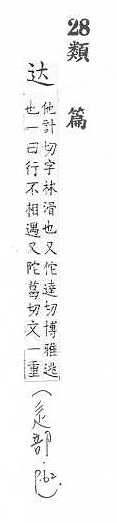 28
類篇
达
他計切字林滑也又佗達切博雅逃
也一曰行不相遇又陀葛切文一重
(辵部 P.62.)